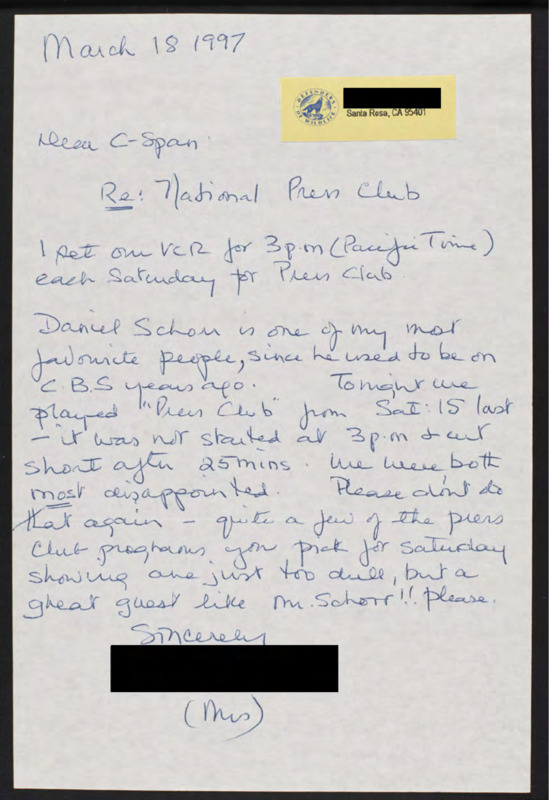 March 18 1997
DEFENDERS OF WILDLIFE
Santa Rosa, CA 95401
Dear C-Span
Re: National Press Club
I set our VCR for 3p.m (Pacific Time)
each Saturday for Press Club.
Daniel Schorr is one of my most
favourite people, since he used to be on
C.B.S years ago. Tonight we
played "Press Club" from Sat: 15 last
– it was not started at 3p.m & cut
short after 25mins. We were both
most disappointed. Please don't do
that again – quite a few of the press
Club programs you pick for Saturday
showing are just too dull, but a
great guest like Mr. Schorr!! please.
Sincerely
(Mrs)